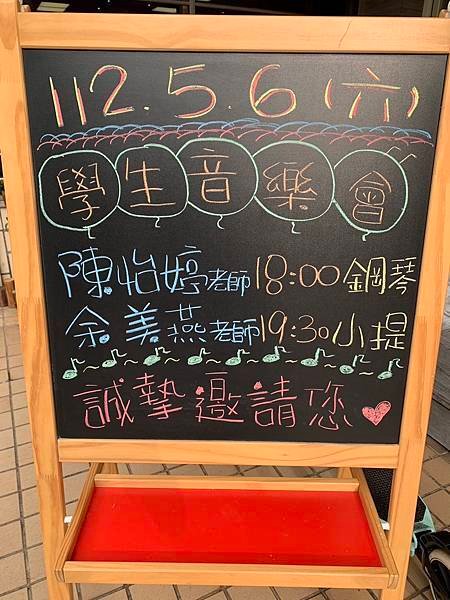 112.5.6(六)
學生音樂會
陳怡婷老師18:00鋼琴
余美燕老師19:30小提
誠摯邀請您